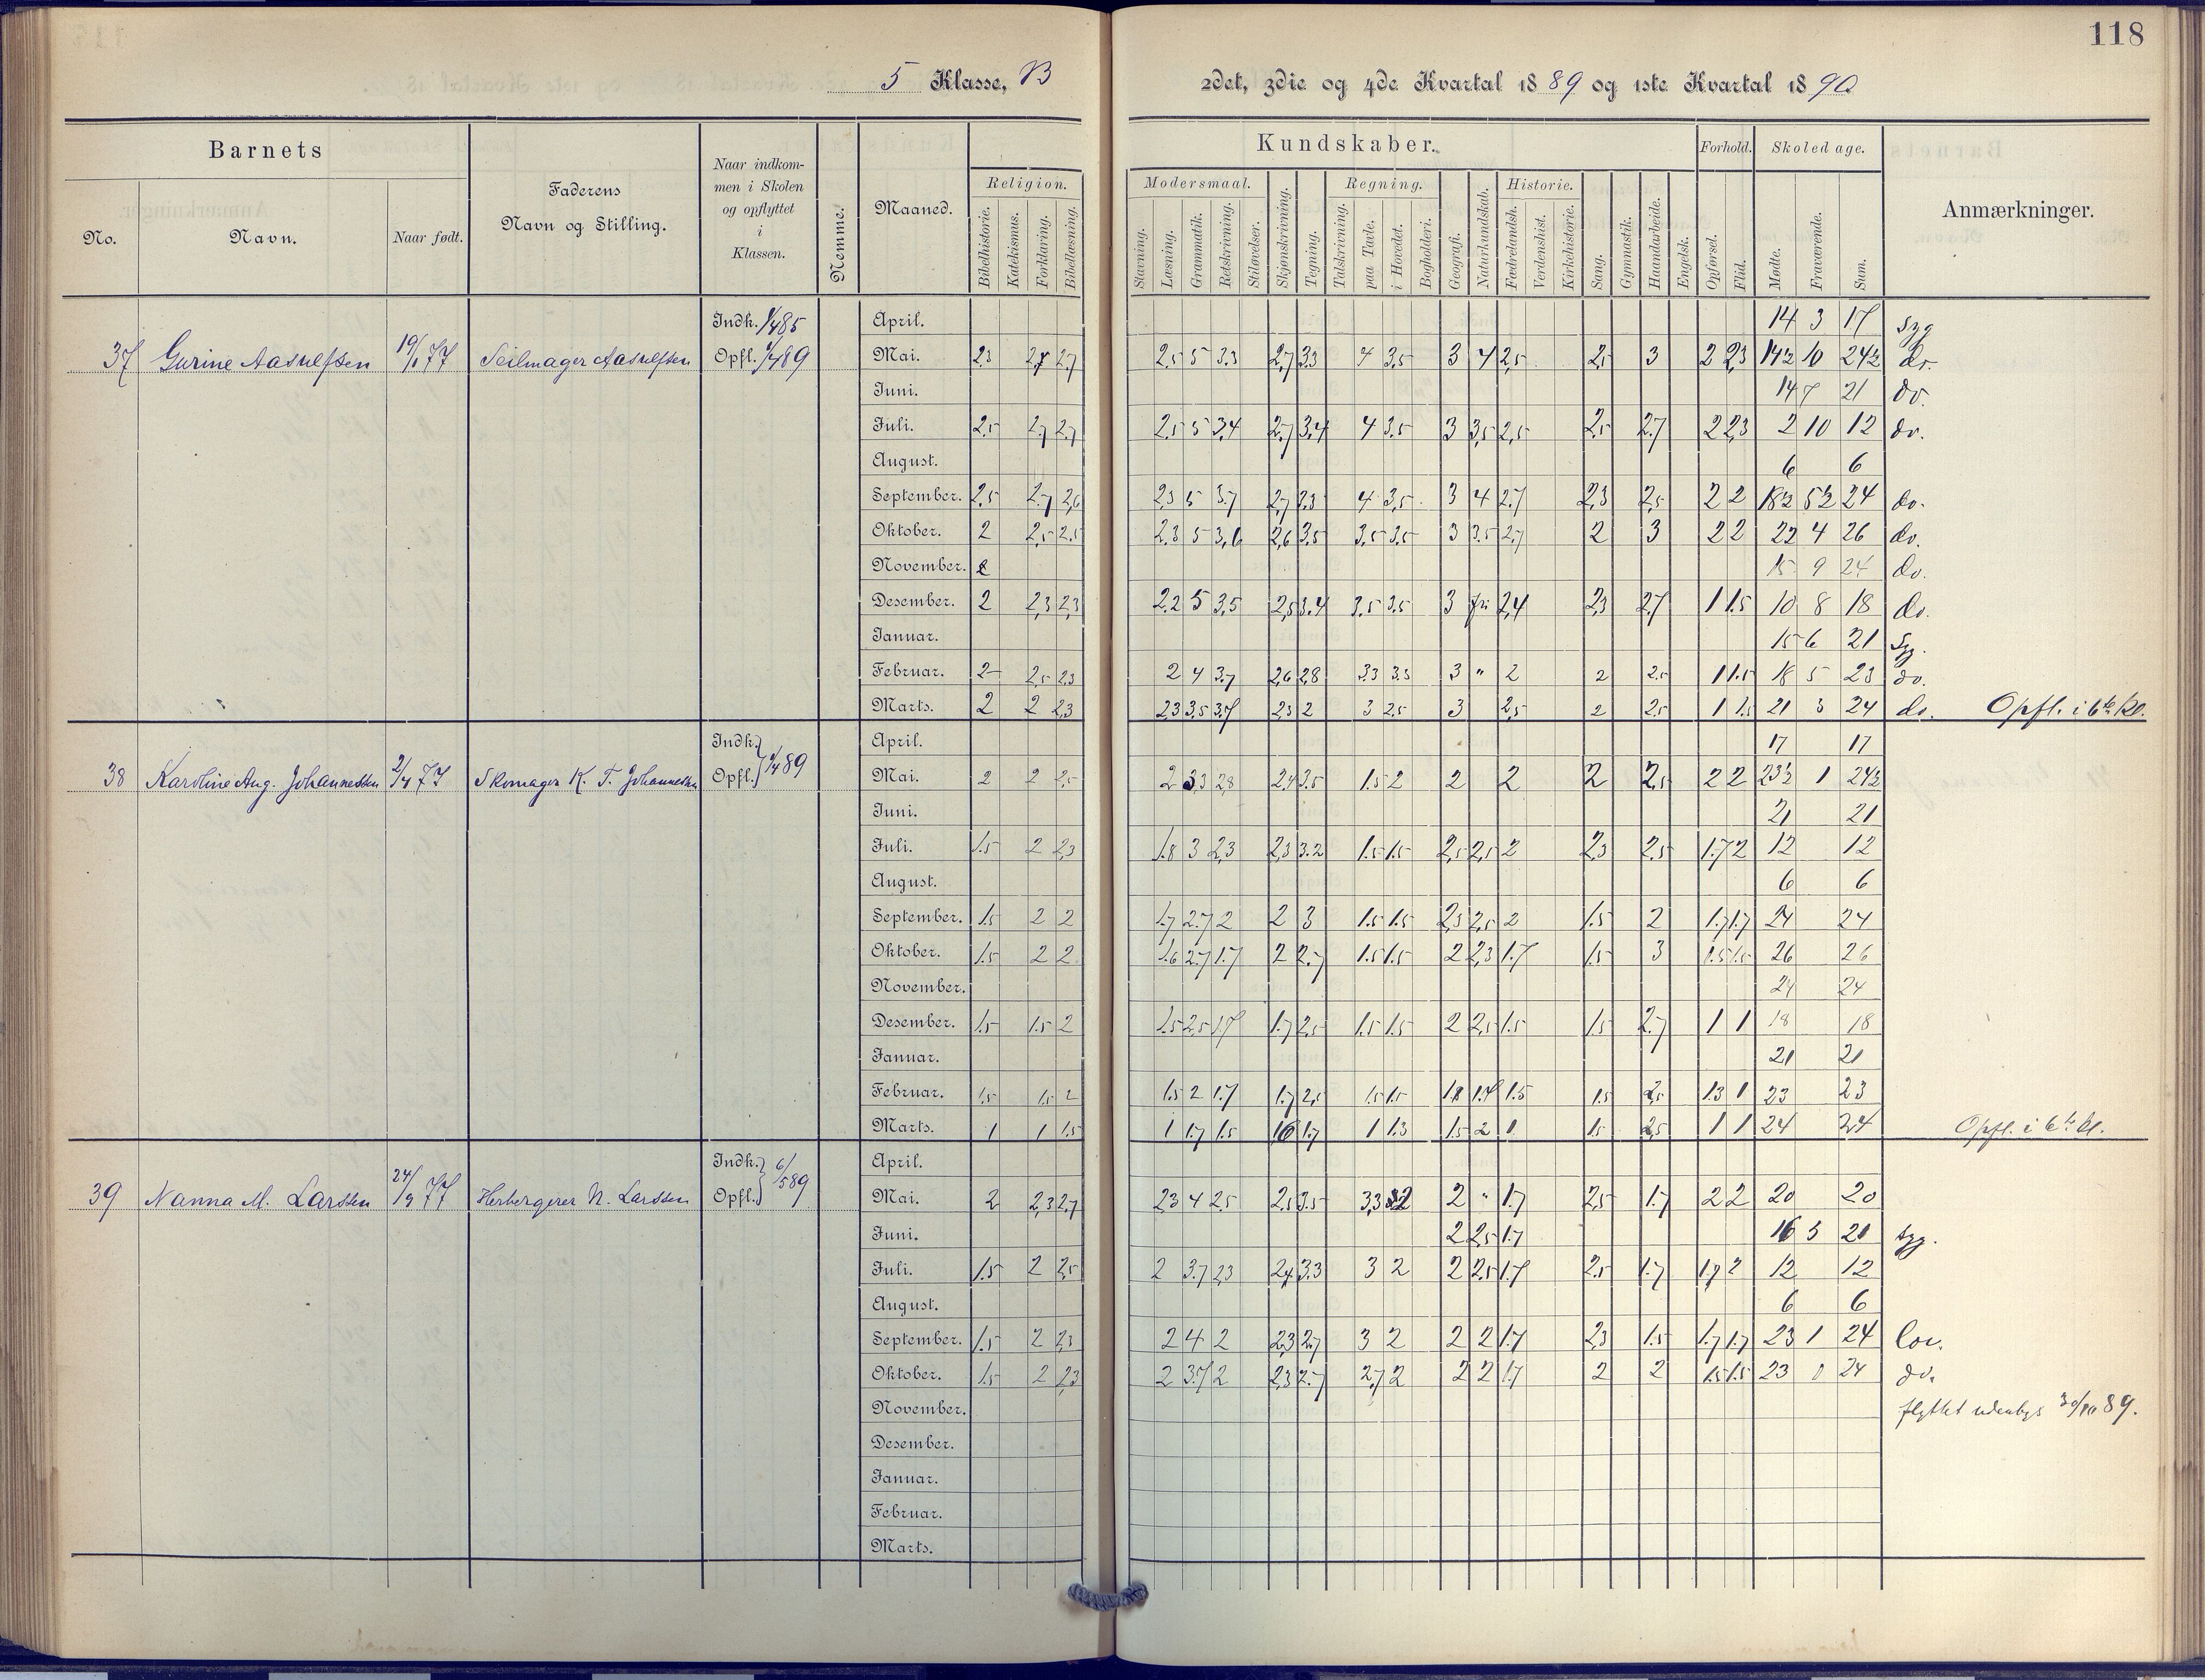 118
5 Klasse, B
2det, 3die og 4de Kvartal 1889 og 1ste Kvartal 1890
Barnets
Faderens
Navn og Stilling.
Naar indkom-
men i Skolen
og opflyttet
i
Klassen.
Nemme.
Maaned.
Kundskaber.
Forhold.
Skoledage.
Anmærkninger.
No.
Navn.
Naar født.
Religion.
Bibelhistorie.
Katekismus.
Forklaring.
Bibellæsning.
Modersmaal.
Stavning.
Læsning.
Grammatik.
Retskrivning.
Stiløvelser.
Skjønskrivning.
Tegning.
Regning.
Talskrivning.
paa Tavle.
i Hovedet.
Bogholderi.
Geografi.
Naturkundskab.
Historie.
Fædrelandsh.
Verdenshist.
Kirkehistorie.
Sang.
Gymnastik.
Haandarbeide.
Engelsk.
Opførsel.
Flid.
Mødte.
Fraværende.
Sum.
37 Gurine Aasulfsen 19/1 77 Seilmager Aasulfsen
Indk. 1/4 85
Opfl. 1/4 89
April. 14 3 17 Syg
Mai. 2,3 2,7 2,7 2,5 5 3,3 2,7 3,3 4 3,5 3 4 2,5 2,5 3 2 2,3 14½ 10 24½ do.
Juni. 14 7 21 do.
Juli. 2,5 2,7 2,7 2,5 5 3,4 2,7 3,4 4 3,5 3 3,5 2,5 2,5 2,7 2 2,3 2 10 12 do.
August. 6 6
September. 2,5 2,7 2,6 2,3 5 3,7 2,7 3,3 4 3,5 3 4 2,7 2,3 2,5 2 2 18½ 5½ 24 do.
Oktober. 2 2,5 2,5 2,3 5 3,6 2,6 3,5 3,5 3,5 3 3,5 2,7 2 3 2 2 22 4 26 do.
November. 15 9 24 do.
Desember. 2 2,3 2,3 2,2 5 3,5 2,5 3,4 3,5 3,5 3 fri 2,4 2,3 2,7 1 1.5 10 8 18 do.
Januar. 15 6 21 Syg.
Februar. 2 2,5 2,3 2 4 3,7 2,6 2,8 3,3 3,3 3 " 2 2 2,5 1 1.5 18 5 23 do.
Marts. 2 2 2,3 2,3 3,5 3,7 2,3 2 3 2,5 3 2,5 2 2,5 1 1.5 21 3 24 do. Opfl. i 6te Kl.
38 Karoline Aug. Johannessen 2/4 77 Skomager K. T. Johannessen
Indk.
Opfl. 1/4 89
April. 17 17
Mai. 2 2 2,5 2 3,3 2,8 2,4 3,5 1.5 2 2 2 2 2,5 2 2 23½ 1 24½
Juni. 21 21
Juli. 1.5 2 2,3 1.8 3 2,3 2,3 3.2 1.5 1.5 2,5 2,5 2 2,3 2,5 1.7 2 12 12
August. 6 6
September. 1.5 2 2 1.7 2.7 2 2 3 1.5 1.5 2,5 2,5 2 1.5 2 1.7 1.7 24 24
Oktober. 1.5 2 2 1.6 2.7 1.7 2 2.7 1.5 1.5 2 2,3 1.7 1.5 3 1.5 1.5 26 26
November. 24 24
Desember. 1.5 1.5 2 1.5 2.5 1.7 1.7 2,5 1.5 1.5 2 2,5 1.5 1.5 2.7 1 1 18 18
Januar. 21 21
Februar. 1.5 1.5 2 1.5 2 1.7 1.7 2,5 1.5 1.5 1.8 1.7 1.5 1.5 2,5 1.3 1 23 23
Marts. 1 1 1.5 1 1.7 1.5 1.6 1.7 1 1.3 1.5 2 1 1.5 2,5 1 1 24 24 Opfl. i 6te kl.
39 Nanna M. Larssen 24/9 77 Herbergerer N. Larssen
Indk.
Opfl. 6/5 89
April.
Mai. 2 2,3 2,7 2,3 4 2,5 2,5 3,5 3,3 2 2 " 1.7 2,5 1.7 2 2 20 20
Juni. 2 2,5 1.7 16 5 21 Syg.
Juli. 1.5 2 2,5 2 3.7 2,3 2,4 3,3 3 2 2 2,5 1.7 2,5 1.7 1,7 2 12 12
August. 6 6
September. 1.5 2 2,3 2 4 2 2,3 2,7 3 2 2 2 1.7 2,3 1.5 1.7 1.7 23 1 24 lov.
Oktober. 1.5 2 2,3 2 3.7 2 2,3 2.7 2,7 2 2 2 1.7 2 2 1.5 1.5 23 1 24 do.
November. flyttet udenbys 30/10 89.
Desember.
Januar.
Februar.
Marts.